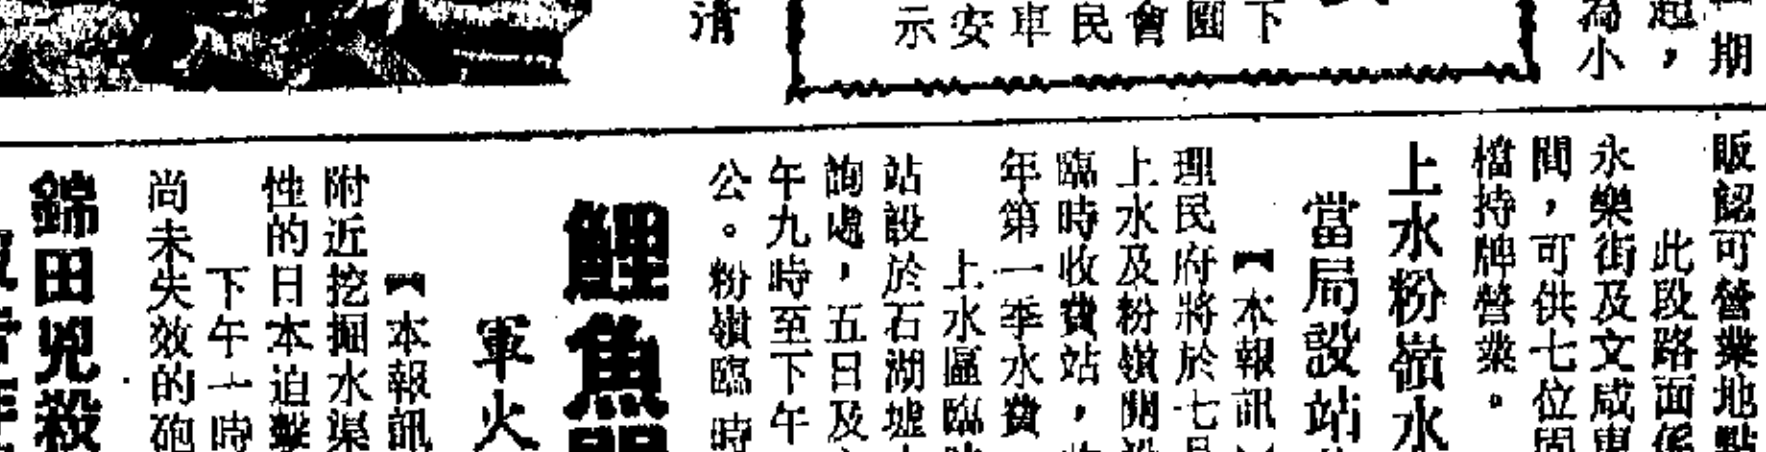 一期
超，
為小
下
園
會
民
車
安
示
清
販認可營業地點
此段路面係
永樂街及文咸東
間，可供七位固
檔持牌營業。
上水粉嶺水
當局設站
【本報訊】
理民府將於七月
上水及粉嶺開設
臨時收費站，收
年第一季水費
上水區臨時
站設於石湖墟
詢處，五日及
午九時至下午
公。粉嶺臨時
鯉魚門
軍火
【本報訊
附近挖掘水渠
性的日本迫擊
下午一時
尚未失效的砲
錦田兇殺